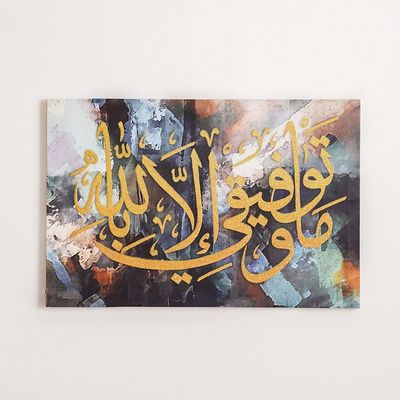 وما توفيقي إلاَّ بالله